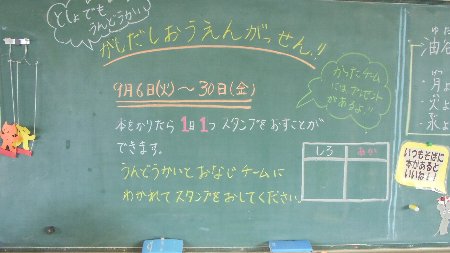 としょでも
うんどうかい
かしだしおうえんがっせん!!
9月6日(火)～30日(金)
本をかりたら1日1つスタンプをおすことが
できます。
うんどうかいとおなじチームに
わかれてスタンプをおしてください。
かったチーム
にはプレゼント
があるよ!!
しろ あか
いつもそばに
本があると
いいね!!
月
火